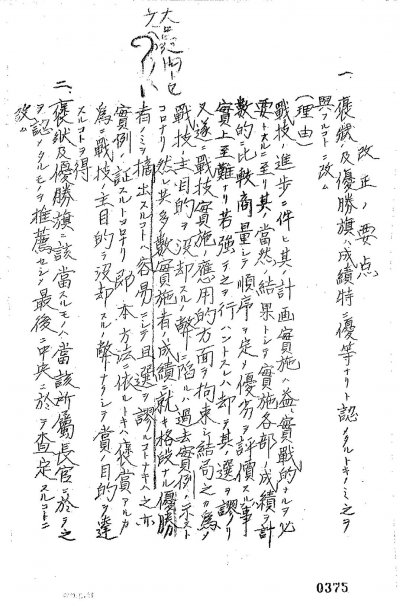 改正ノ要点
一、褒状及優勝旗ハ成績特ニ優等ナリト認メタルトキノミ之ヲ
與フルコトニ改ム
(理由)
戰技ノ進歩ニ伴ヒ其ノ計画実施ハ益〻實戰的ナルヲ必
要トスルニ至リ其ノ當然ノ結果トシテ実施各部ノ成績ヲ計
数的ニ比較商量シテ順序ヲ定メ優劣ヲ評價スル事
實上至難ナリ若強テ之ヲ行ハントスレハ却テ其ノ選ヲ謬リ
又遂ニ戰技實施ノ應用的方面ヲ拘束シ結局之カ為メ
戰技ノ主目的ヲ没却スルノ弊ニ陥ルハ過去ノ實例ノ示スト
コロナリ然レ共多数實施者ノ成績ニ就キ格段ナル優勝
者ノミヲ摘出スルコトハ容易ニシテ且選ヲ謬ルコトナキハ之亦
實例ノ証スルトコロナリ即本方法ニ依ルトキハ褒賞アルカ
為ニ戰技ノ主目的ヲ没却スルノ弊ナクシテ賞ノ目的ヲ達
スルコトヲ得
二、褒状及優勝旗ニ該當スルモノハ當該所属長官ニ於テ之
ヲ認メタルモノヲ推薦セシメ最後ニ中央ニ於テ査定スルコトニ
改ム
0375